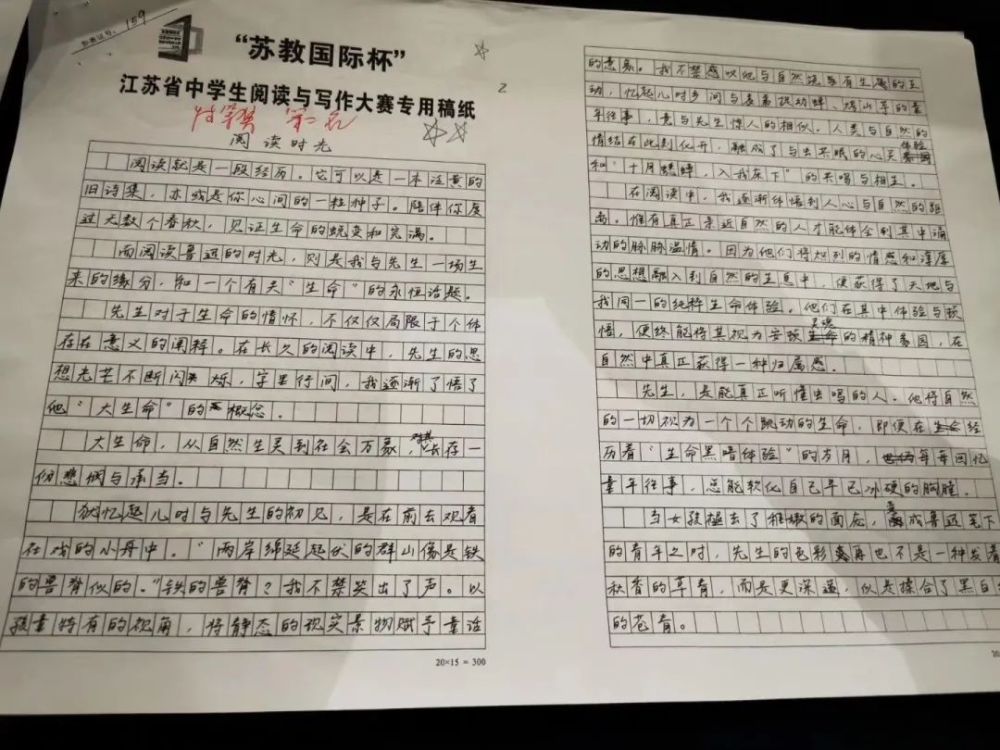 159
“苏教国际杯”
江苏省中学生阅读与写作大赛专用稿纸
特等奖 第一名
2
阅读时光
阅读就是一段经历。它可以是一本泛黄的
旧诗集，亦或是你心间的一粒种子。陪伴你度
过无数个春秋，见证生命的蜕变和完满。
而阅读鲁迅的时光，则是我与先生一场生
来的缘分，和一个有关“生命”的永恒话题。
先生对于生命的情怀，不仅仅局限于个体
存在意义的阐释。在长久的阅读中，先生的思
想光芒不断闪烁，字里行间，我逐渐了悟了
他“大生命”的概念。
大生命，从自然生灵到社会万象，都长存一
份悲悯与承当。
犹忆起儿时与先生的初见，是在前去观看
社戏的小舟中。“两岸绵延起伏的群山像是铁
的兽脊似的。”铁的兽脊？我不禁笑出了声。以
孩童特有的视角，将静态的现实景物赋予童话
20×15 = 300
的意象。我不禁感叹他与自然颇有生趣的互
动，忆起儿时乡间与表弟捉幼蝉、
年往事，竟与先生惊人的相似。人类与自然的
情结在此刻化开，融成了与虫共眠的心灵体验
和“十月蟋蟀，入我床下”的共鸣与相互。
在阅读中，我逐渐体悟到人心与自然的距
离。惟有真正亲近自然的人才能体会到其中涌
动的脉脉温情。因为他们将炽烈的情感和淳厚
的思想融入到自然的生息中，便获得了天地与
我同一的纯粹生命体验。他们在其中体验与顿
悟，便终能将其视为安顿灵魂的精神家园，在
自然中真正获得一种归属感。
先生，是能真正听懂虫唱的人。他将自然
的一切视为一个个跳动的生命，即便在经
历着“生命黑暗体验”的岁月，每每回忆
童年往事，总能软化自己早已冰硬的胸膛。
当女孩褪去了稚嫩的面庞，成鲁迅笔下
的青年之时，先生的色彩再也不是一种发着
秋香的草青，而是更深邃，似是揉合了黑白
的苍青。
20